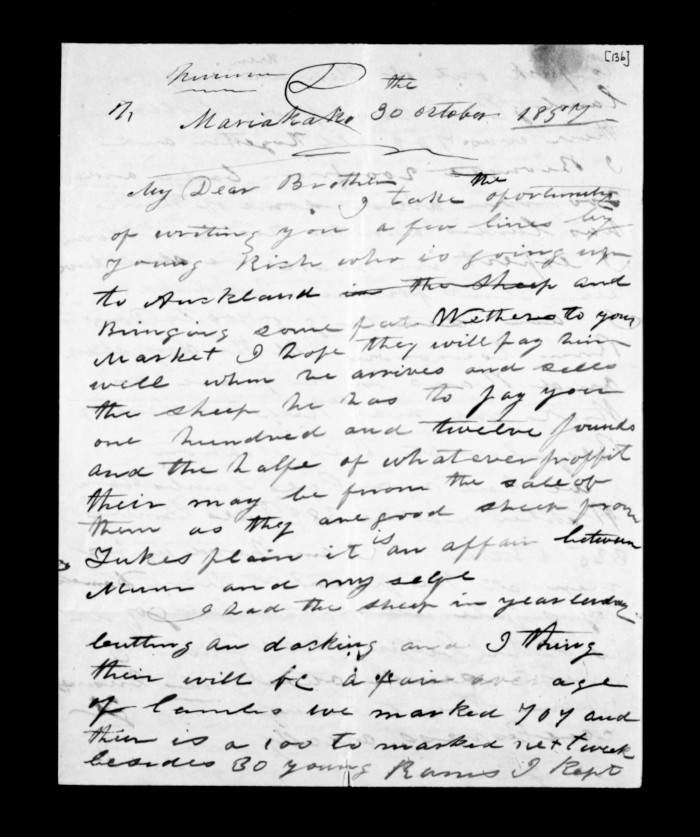 [136]
the
Mariakako 30 october 1857
My Dear Brother the
I take oportunity
of writing you a few lines by
Young Rich who is going up
to Auckland in the sheep and
Bringing some Wethers to your
Market I hope they will pay him
well when he arrives and sells
the sheep he has to pay you
one hundred and twelve pounds
and the halfe of whatever proffit
their may be from the sale of
them as they are good sheep from
plain it is an affair between
and my selfe
I had the sheep in yearsterday
cutting an docking and I thing
their will be a fair average
of lambs we marked 707 and
their is a 100 to marked next week
besides 30 young Rams I Kept